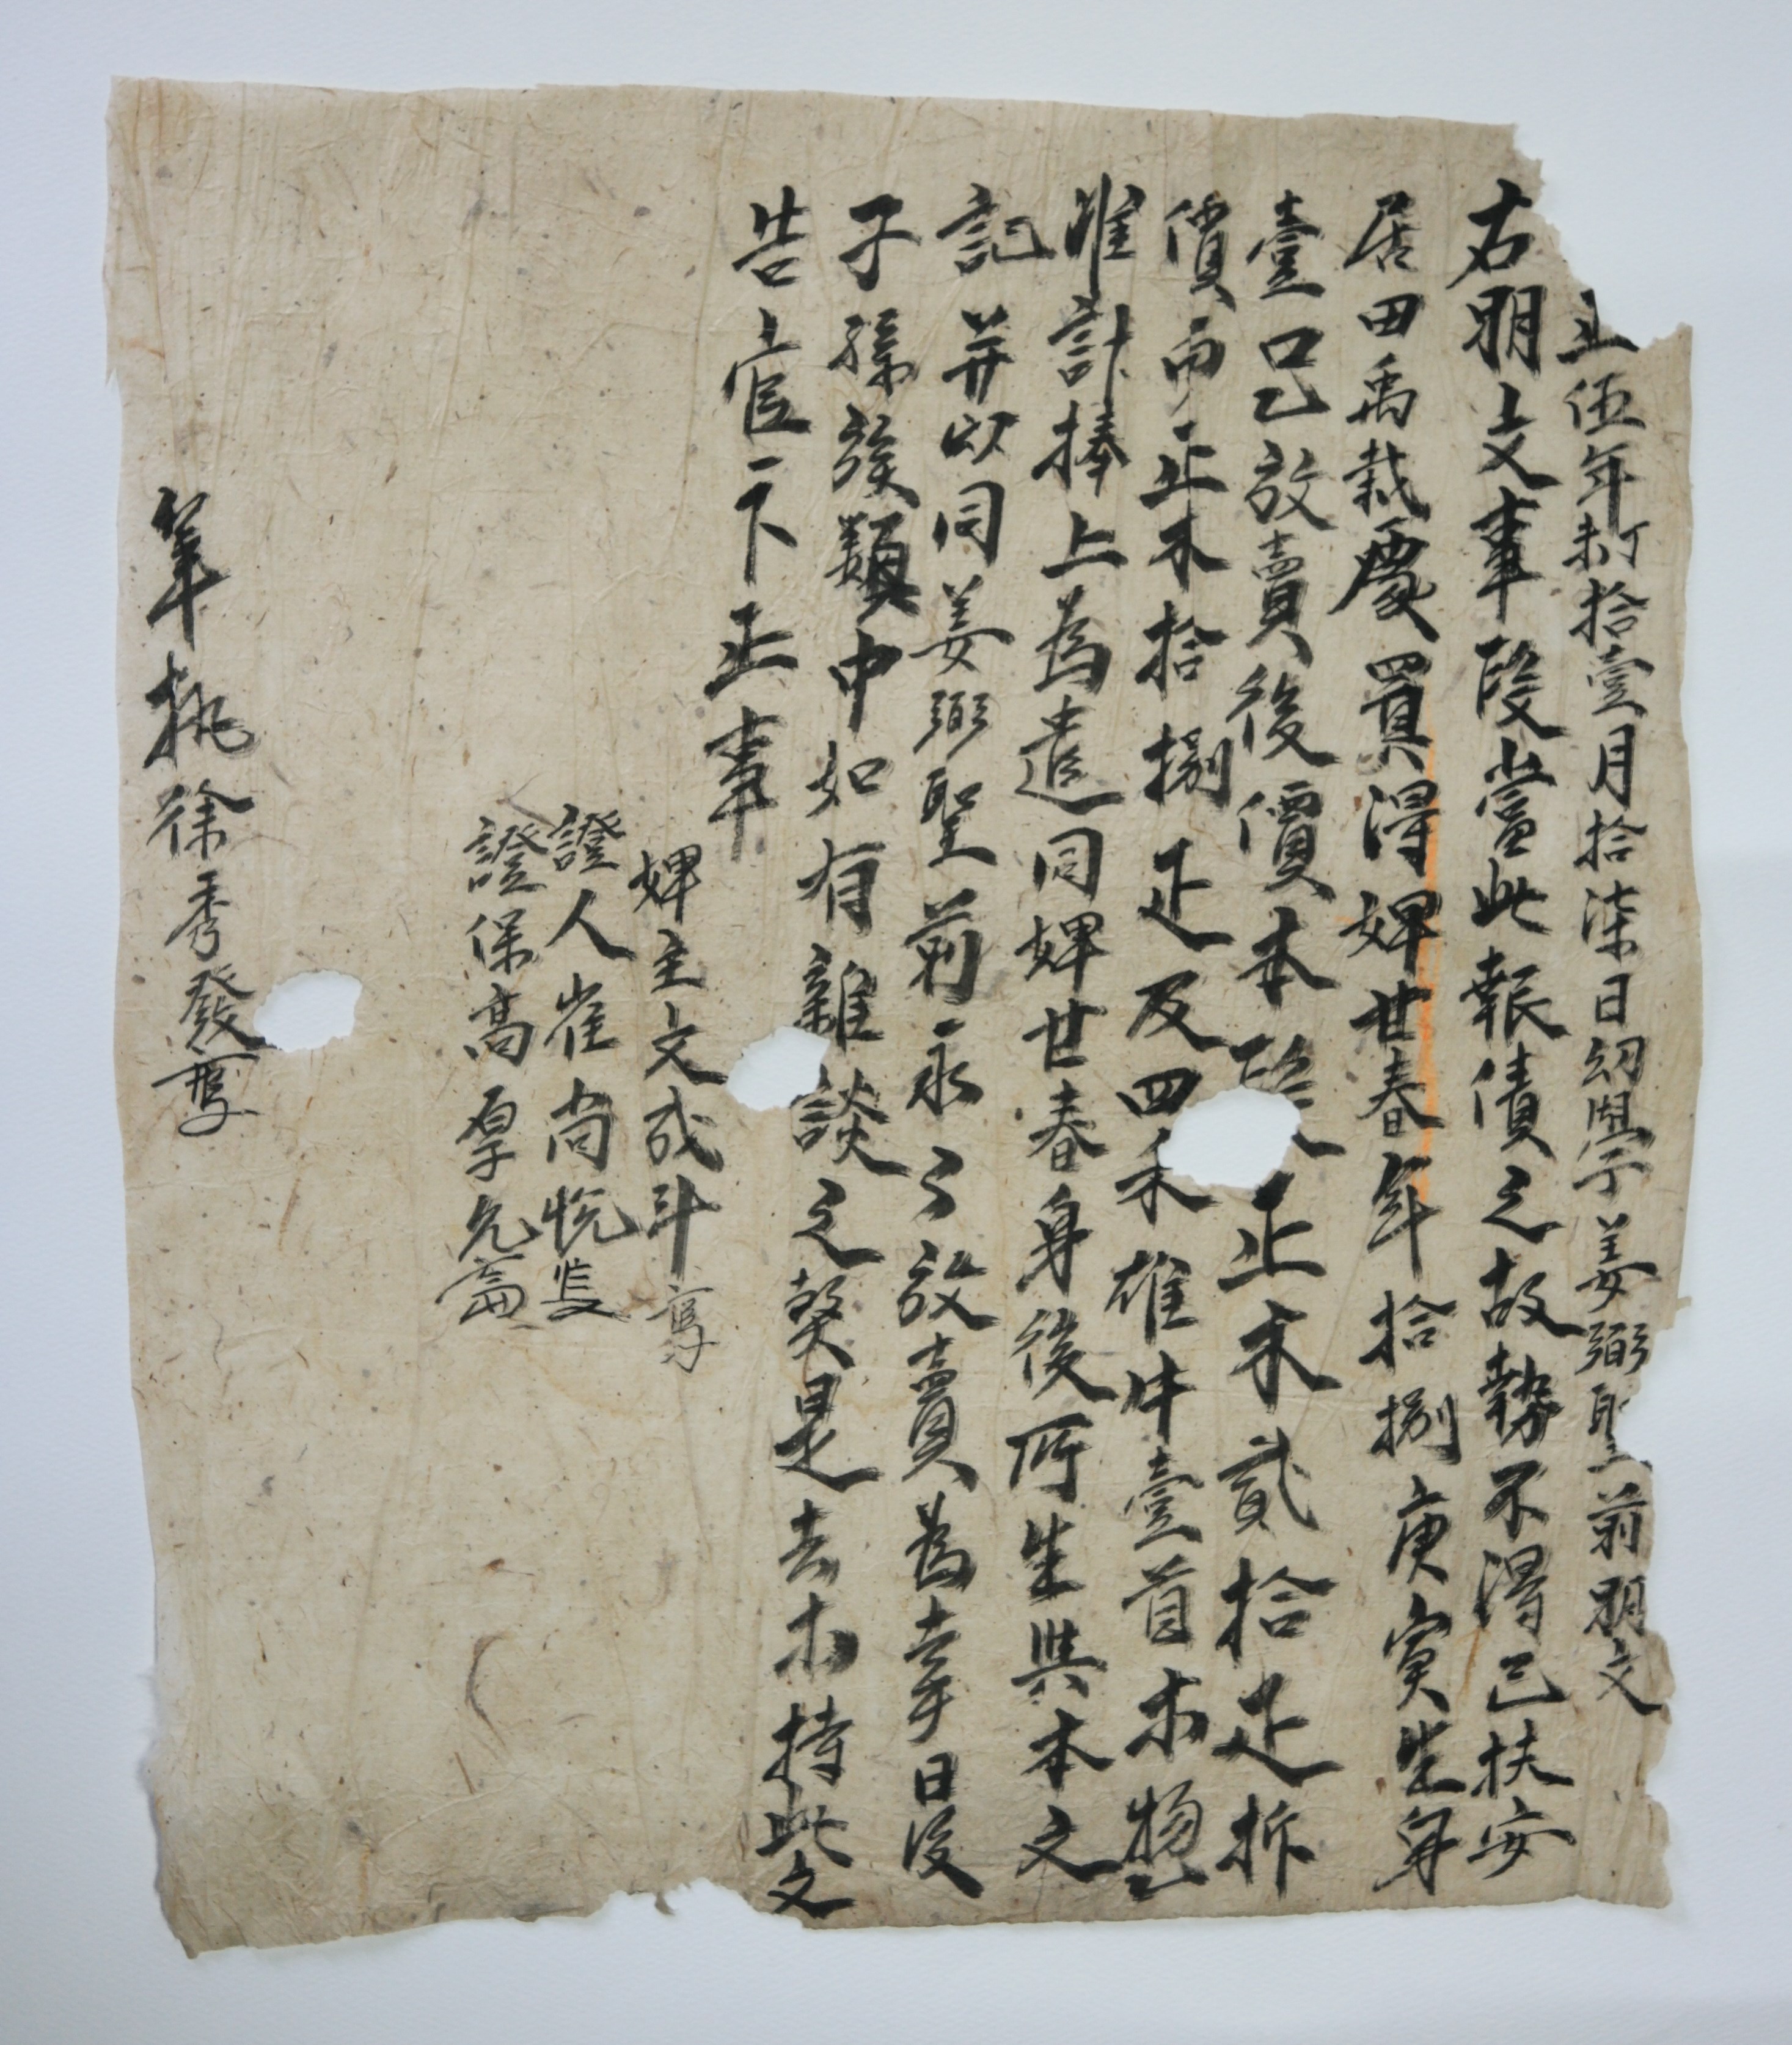 伍年 拾壹月拾柒日幼學姜弼聖前明文
右明文事段當此報債之故勢不得已扶安
居田禹栽處買得婢廿春年拾捌庚寅生身
壹口乙放賣後價本 正木貳拾疋折
價而正木拾捌疋及四禾雄牛壹首木物乙
准計捧上為遣同婢廿春身後所生與本文
記并以同姜弼聖前永永放賣為乎日後
子孫族類中如有雜談之弊是去木持此文
告官卞正事
婢主文成斗
證人崔尚悅
證保高厚允
筆執徐秀發